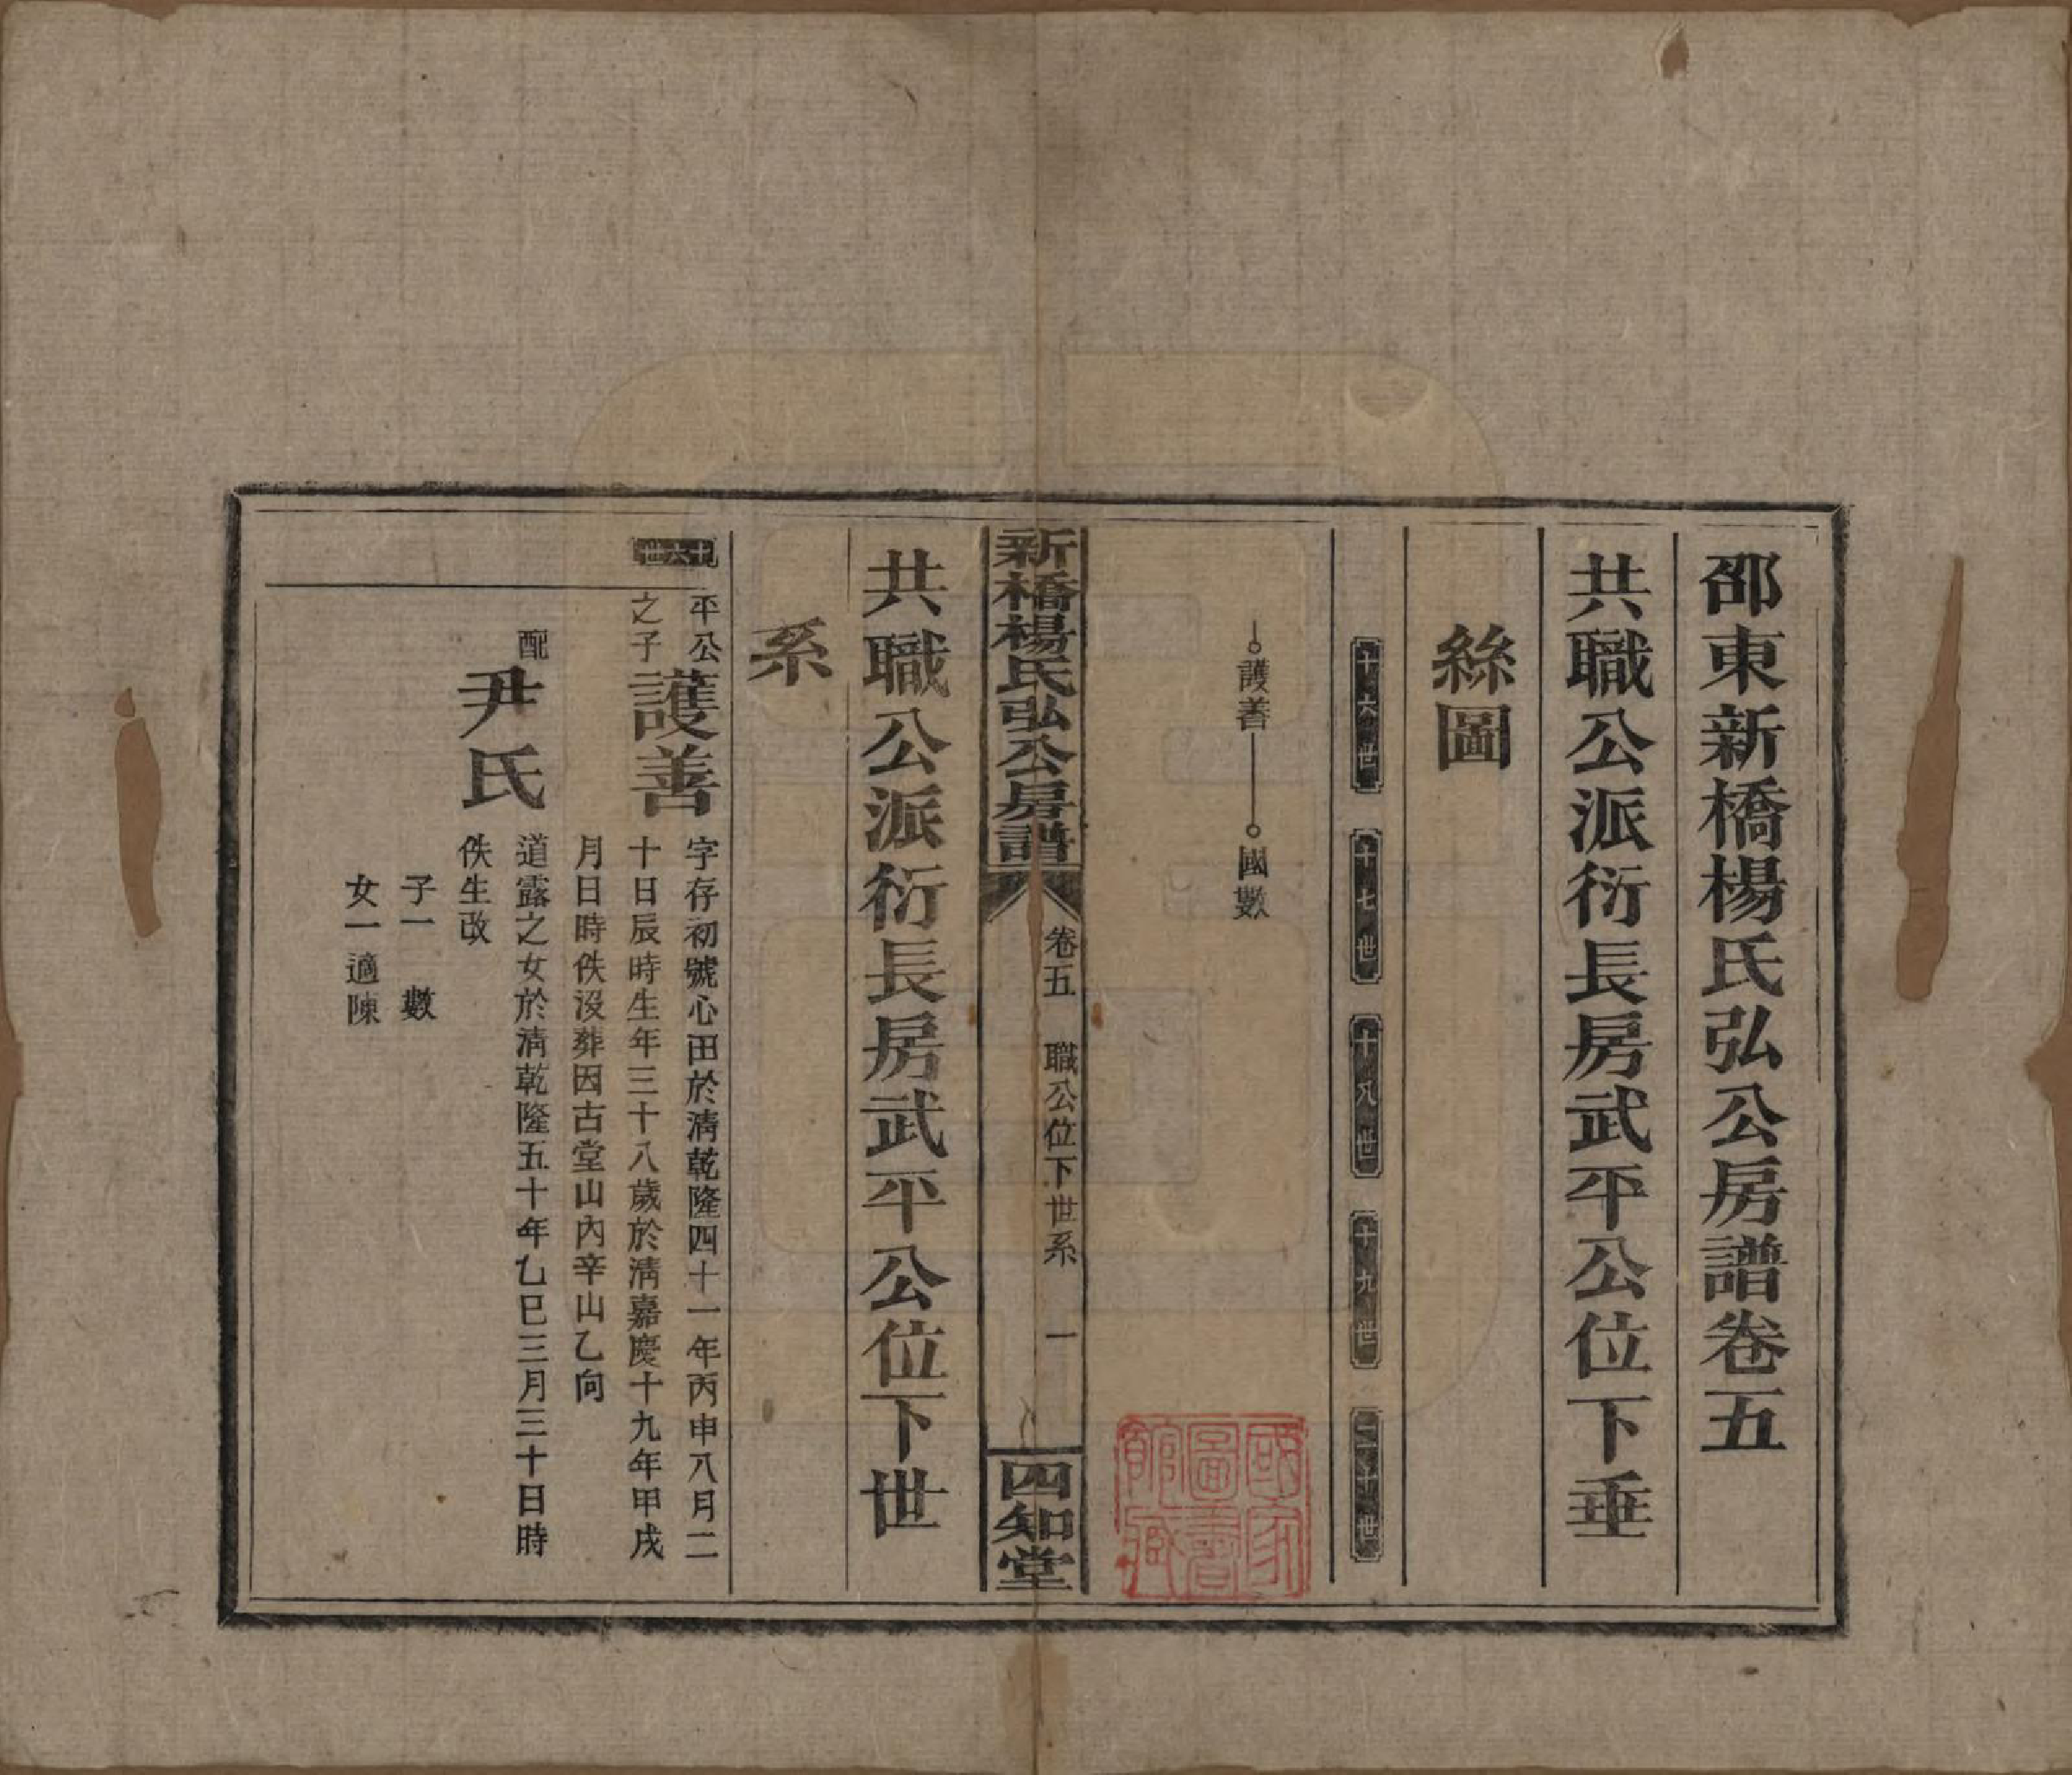 邵東新橋楊氏弘公房譜卷五
共職公派衍長房武平公位下垂
絲圖
十六世　十七世　十八世　十九世　二十世
護善　國數
國家圖書館藏
新橋楊氏弘公房譜　卷五　職公位下世系　一　四知堂
共職公派衍長房武平公位下世
系
十六世
平公之子護善
字存初號心田於淸乾隆四十一年丙申八月二
十日辰時生年三十八歲於淸嘉慶十九年甲戌
月日時佚沒葬因古堂山內辛山乙向
配尹氏
道露之女於淸乾隆五十年乙巳三月三十日時
佚生改
子一　數
女一適陳